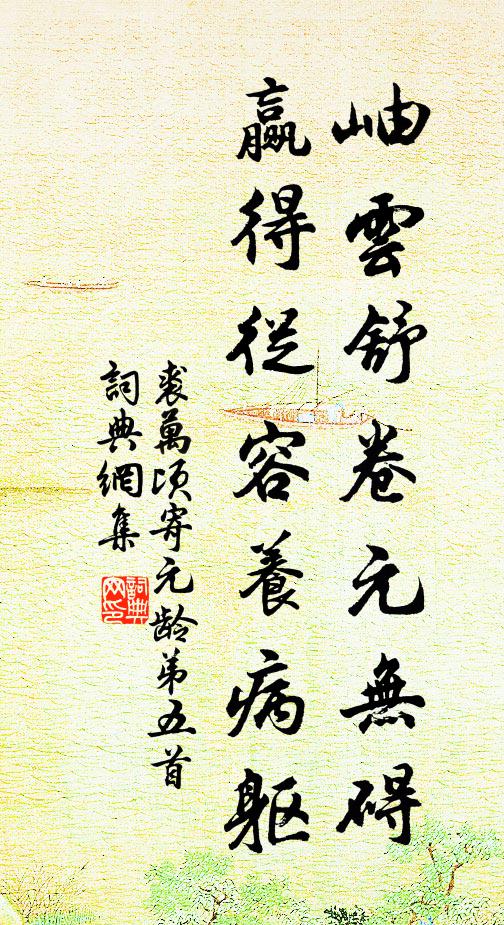 岫雲舒卷元無碍
贏得從容養病軀
裘萬頃寄元龄第五首
詞典網集
詞典網印